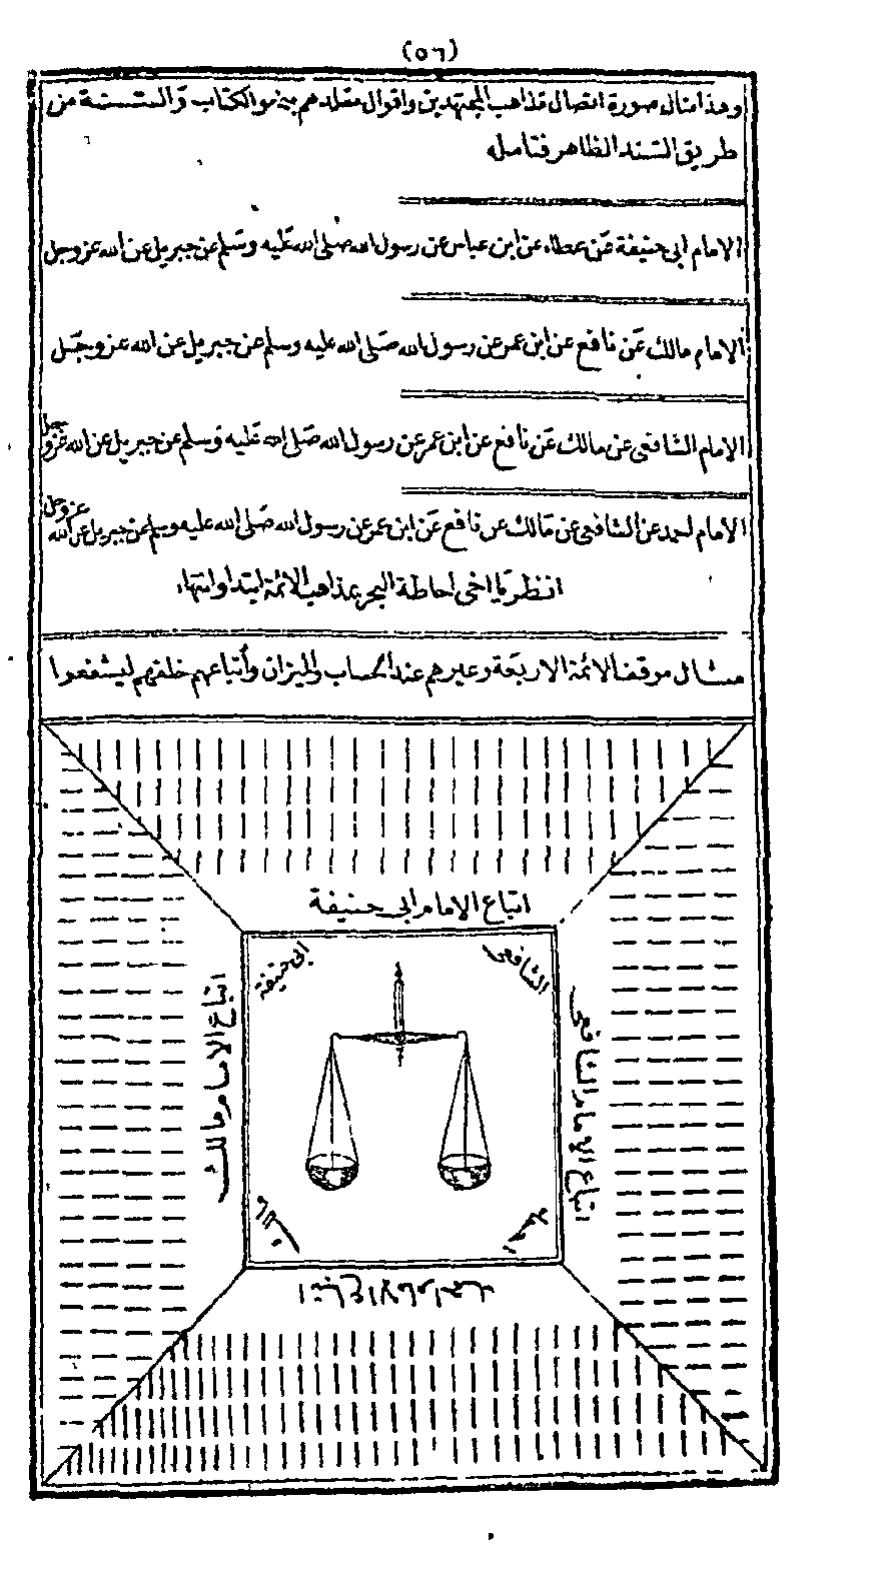 (٥٦)
وهذا مثال صورة اتصال مذاهب المجتهدين واقوال مقلديهم بعين الكتاب والسنة من
طريق السند الظاهر فتامله
الامام ابي حنيفة عن عطاء عن ابن عباس عن رسول الله صلى الله عليه وسلم عن جبريل عن الله عز وجل
الامام مالك عن نافع عن ابن عمر عن رسول الله صلى الله عليه وسلم عن جبريل عن الله عز وجل
الامام الشافعى عن مالك عن نافع عن ابن عمر عن رسول الله صلى الله عليه وسلم عن جبريل عن الله عز وجل
الامام احمد عن الشافعى عن مالك عن نافع عن ابن عمر عن رسول الله صلى الله عليه وسلم عن جبريل عن الله عز وجل
انظر يا اخى احاطة البحر بمذاهب الائمة ابتداء وانتهاء
مثال موقف الائمة الاربعة وغيرهم عند الحساب والميزان وأتباعهم خلفهم ليشفعوا
اتباع الامام ابى حنيفة
ابى حنيفة
الشافعى
اتباع الامام مالك
اتباع الامام الشافعى
مالك
احمد
اتباع الامام احمد